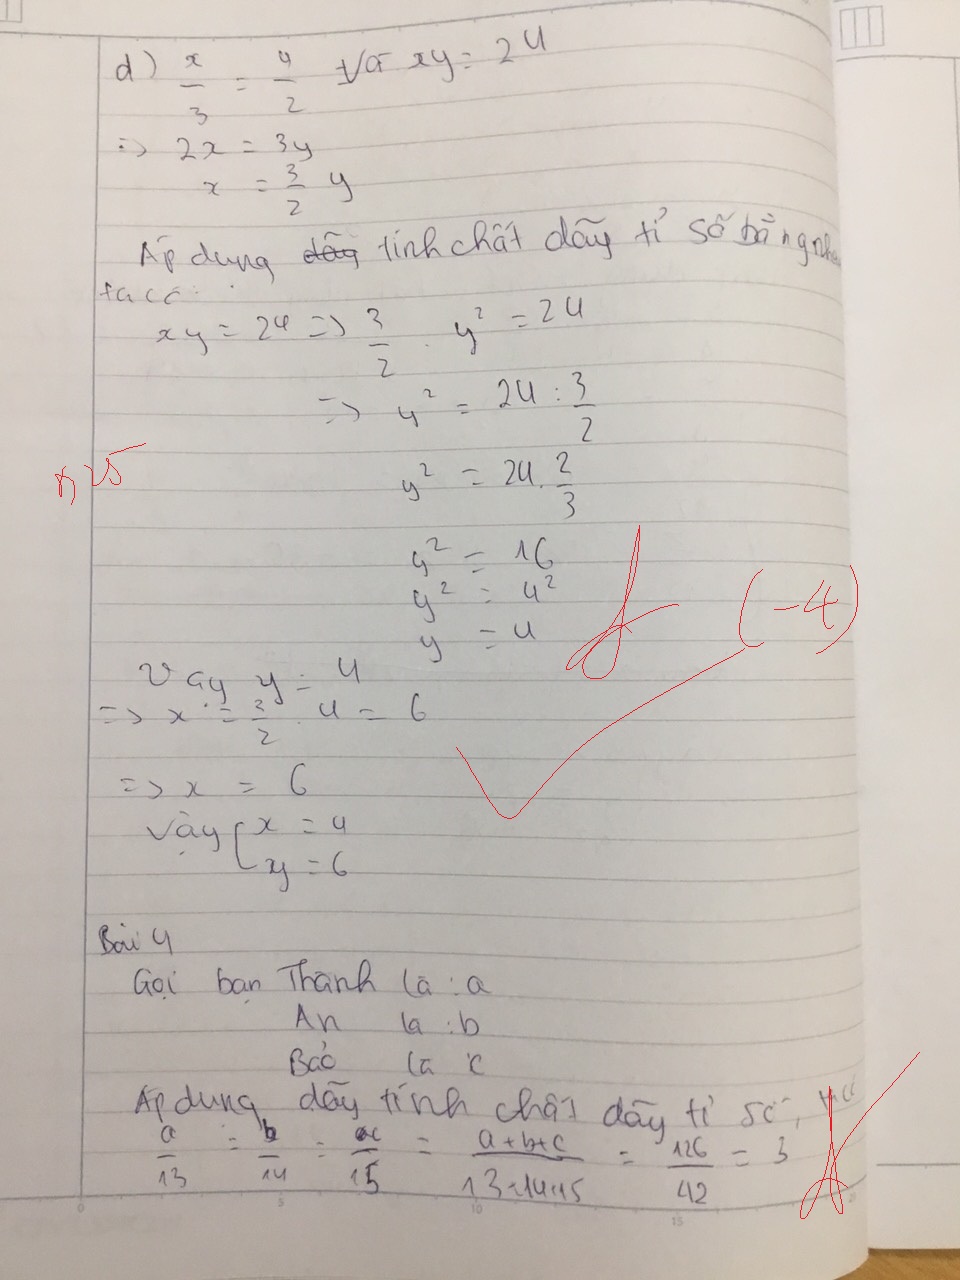 d) x/3 = y/2 và xy = 24
=> 2x = 3y
x = 3/2 y
Áp dụng tính chất dãy tỉ số bằng nha
ta có:
xy = 24 => 3/2 . y² = 24
=> y² = 24 : 3/2
y² = 24 . 2/3
y² = 16
y² = 4²
y = 4
(-4)
Vậy y = 4
=> x = 3/2 . 4 = 6
=> x = 6
Vậy { x = 4
xy = 6
Bài 4
Gọi bạn Thành là : a
An là : b
Bảo là c
Áp dụng dãy tính chất dãy tỉ số,
a/13 = b/14 = c/15 = a+b+c/13+14+15 = 126/42 = 3
0 5 10 15